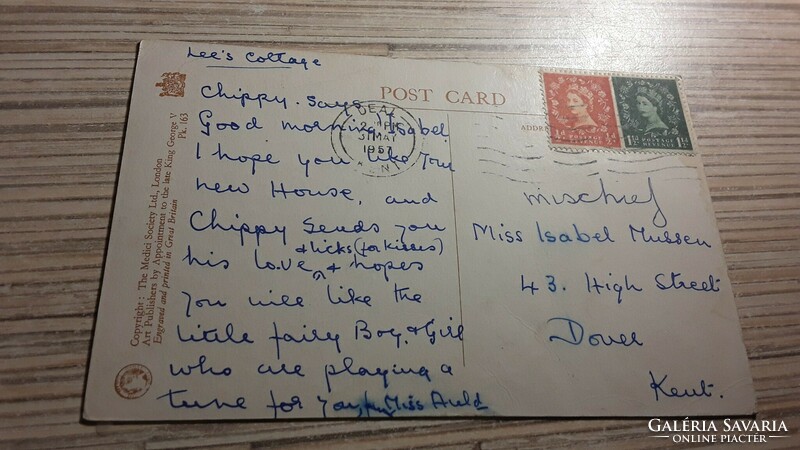 Lee's Cottage
Chippy. Says
Good morning Isabel
I hope you like your
new House, and
Chippy sends you
& licks (for kisses)
his love & hopes
you will like the
little fairy Boy & Girl
who are playing a
tune for you, Miss Auld
POST CARD
DEAL
31 MAY
1957
KENT
½d
½d
1½d POSTAGE REVENUE 1½d
mischief
Miss Isabel Mussen
43. High Street
Dover
Kent.
Copyright: The Medici Society Ltd., London
Pk. 163
Art Publishers by Appointment to the late King George V
Engraved and printed in Great Britain
GALÉRIA SAVARIA
ONLINE PIACTÉR